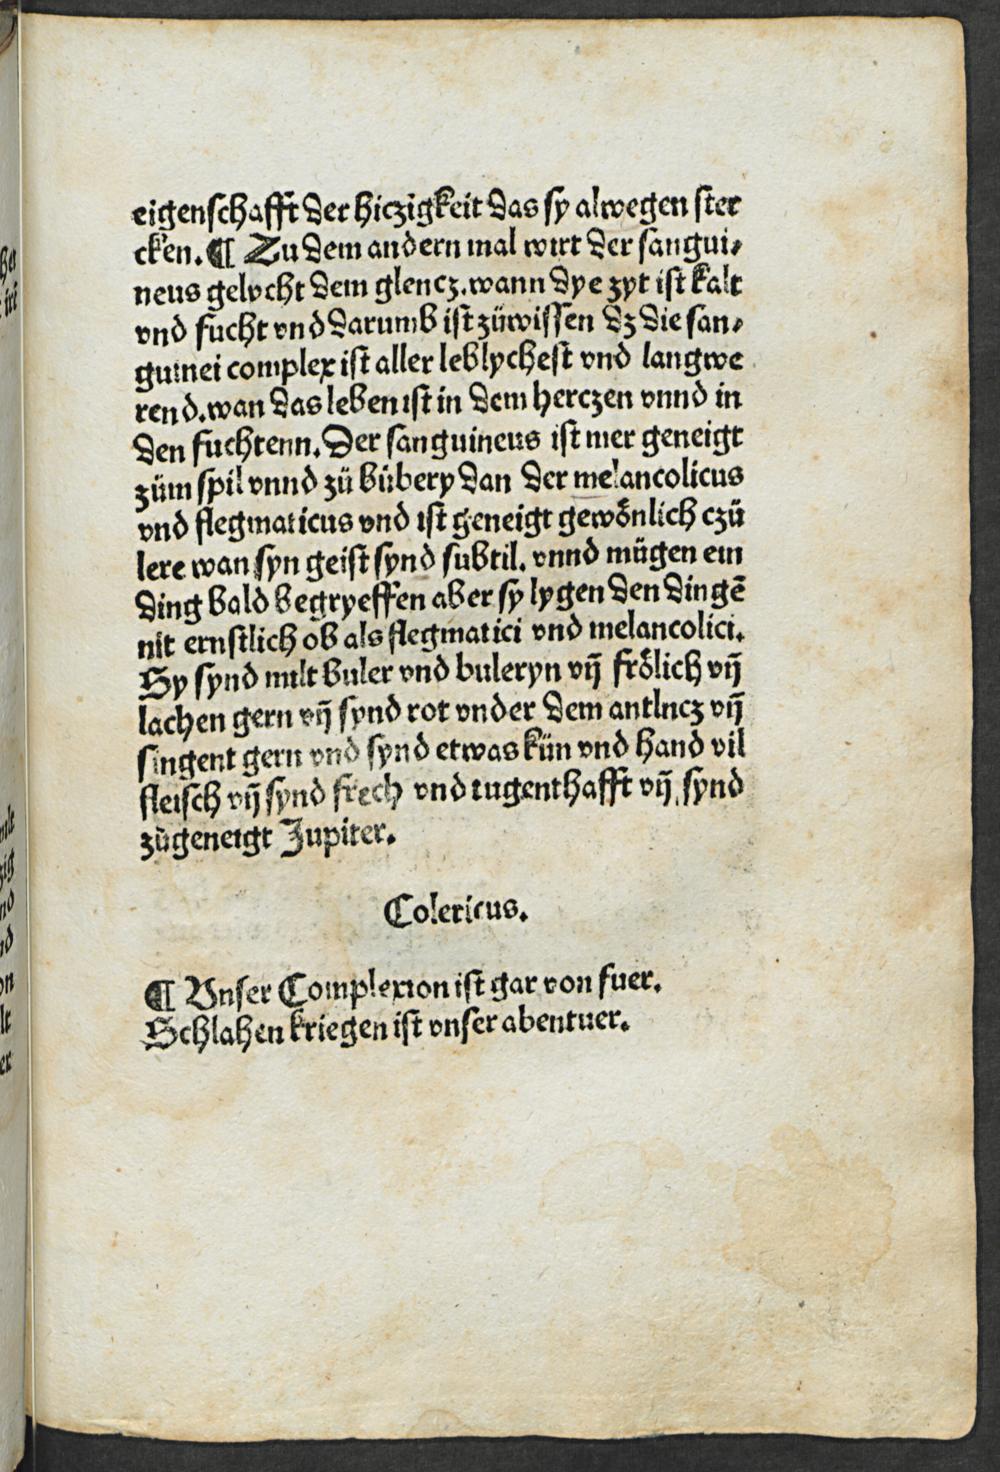 eigenschafft der hiczigkeit das sy alwegen ster
cken. ¶ Zu dem andern mal wirt der sangui⸗
neus gelycht dem glencz. wann dye zyt ist kalt
vnd fucht vnd darumb ist züwissen dz die san⸗
guinei complex ist aller leblychest vnd langwe
rend. wan das leben ist in dem herczen vnnd in
den fuchtenn. Der sanguineus ist mer geneigt
züm spil vnnd zü bübery dan der melancolicus
vnd flegmaticus vnd ist geneigt gewönlich czü
lere wan syn geist synd subtil. vnnd mügen ein
ding bald begryeffen aber sy lygen den dingē
nit ernstlich ob als flegmatici vnd melancolici.
Sy synd milt buler vnd buleryn vn̄ frölich vn̄
lachen gern vn̄ synd rot vnder dem antlucz vn̄
singent gern vnd synd etwas kün vnd hand vil
fleisch vn̄ synd frech vnd tugenthafft vn̄ synd
zügeneigt Jupiter.
Colericus.
¶ Vnser Complexion ist gar von fuer.
Schlahen kriegen ist vnser abentuer.